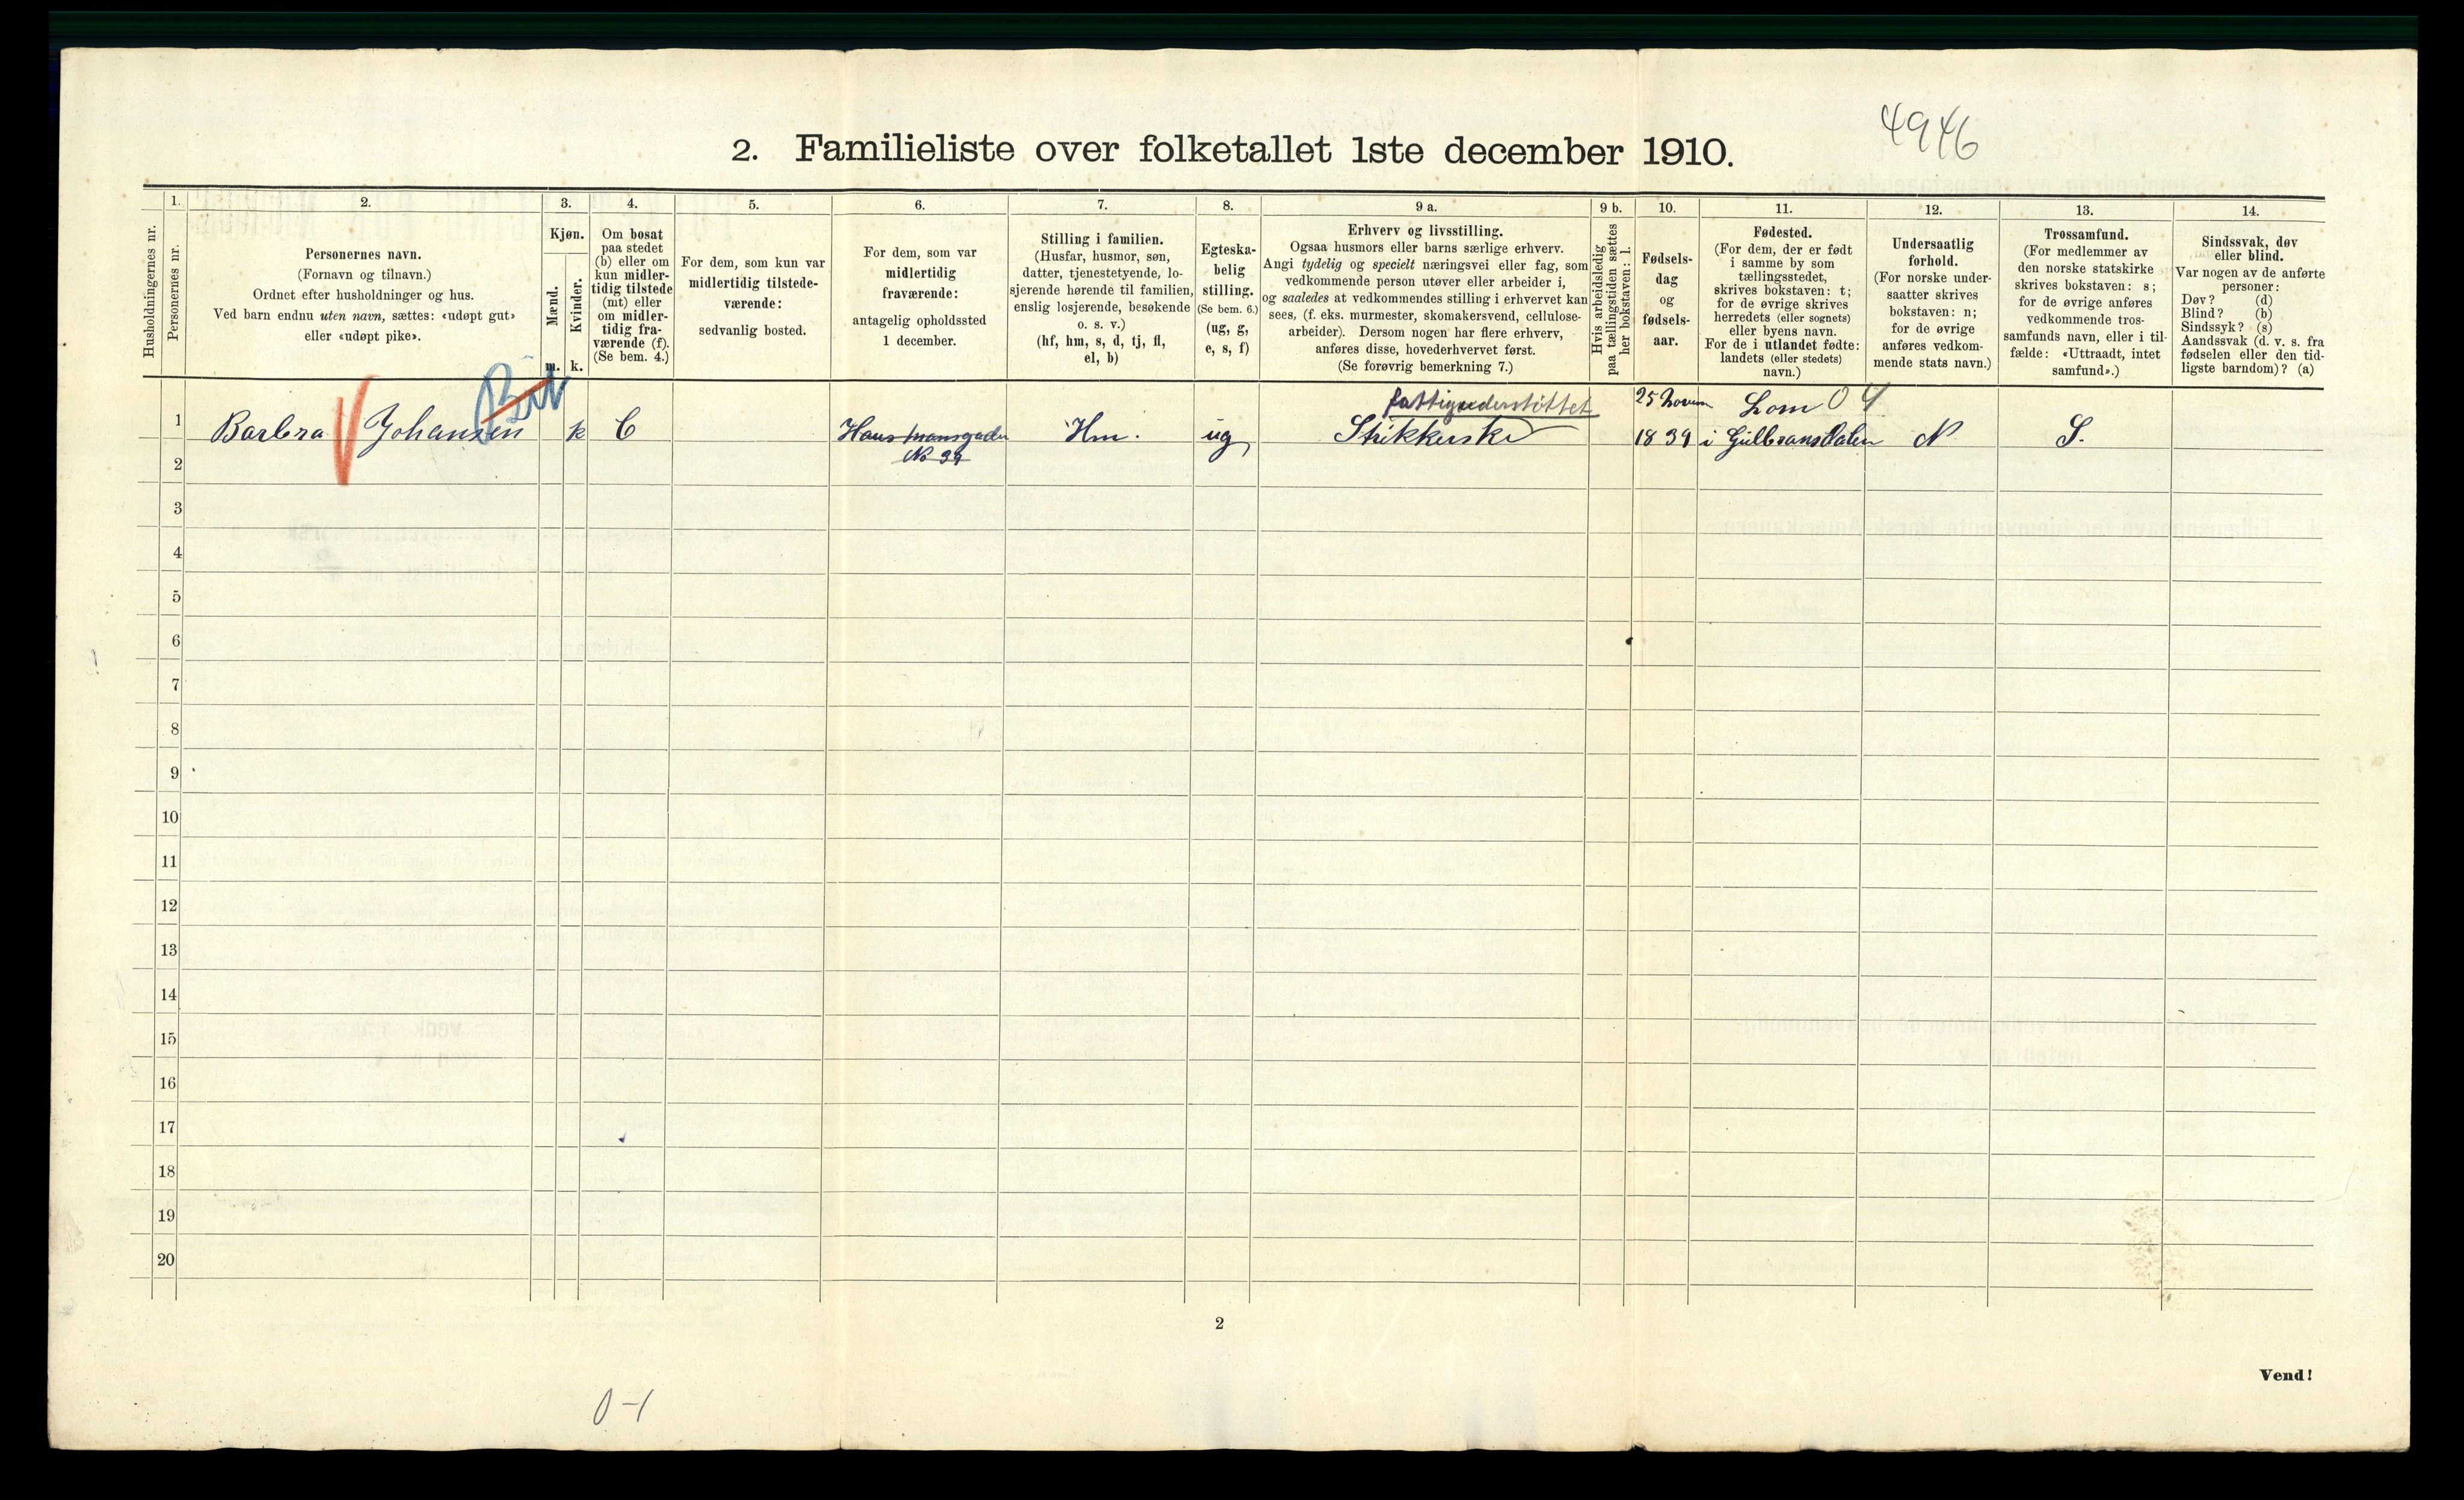 4946
2. Familieliste over folketallet 1ste december 1910.
Husholdningernes nr.
1.
Personernes nr.
2.
Personernes navn.
(Fornavn og tilnavn.)
Ordnet efter husholdninger og hus.
Ved barn endnu uten navn, sættes: «udøpt gut»
eller «udøpt pike».
3.
Kjøn.
Mænd.
Kvinder.
m.
k.
4.
Om bosat
paa stedet
(b) eller om
kun midler-
tidig tilstede
(mt) eller
om midler-
tidig fra-
værende (f).
(Se bem. 4.)
5.
For dem, som kun var
midlertidig tilstede-
værende:
sedvanlig bosted.
6.
For dem, som var
midlertidig
fraværende:
antagelig opholdssted
1 december.
7.
Stilling i familien.
(Husfar, husmor, søn,
datter, tjenestetyende, lo-
sjerende hørende til familien,
enslig losjerende, besøkende
o. s. v.)
(hf, hm, s, d, tj, fl,
el, b)
8.
Egteska-
belig
stilling.
(Se bem. 6.)
(ug, g,
e, s, f)
9 a.
Erhverv og livsstilling.
Ogsaa husmors eller barns særlige erhverv.
Angi tydelig og specielt næringsvei eller fag, som
vedkommende person utøver eller arbeider i,
og saaledes at vedkommendes stilling i erhvervet kan
sees, (f. eks. murmester, skomakersvend, cellulose-
arbeider). Dersom nogen har flere erhverv,
anføres disse, hovederhvervet først.
(Se forøvrig bemerkning 7.)
9 b.
Hvis arbeidsledig
paa tællingstiden sættes
her bokstaven: l.
10.
Fødsels-
dag
og
fødsels-
aar.
11.
Fødested.
(For dem, der er født
i samme by som
tællingsstedet,
skrives bokstaven: t;
for de øvrige skrives
herredets (eller sognets)
eller byens navn.
For de i utlandet fødte:
landets (eller stedets)
navn.)
12.
Undersaatlig
forhold.
(For norske under-
saatter skrives
bokstaven: n;
for de øvrige
anføres vedkom-
mende stats navn.)
13.
Trossamfund.
(For medlemmer av
den norske statskirke
skrives bokstaven: s;
for de øvrige anføres
vedkommende tros-
samfunds navn, eller i til-
fælde: «Uttraadt, intet
samfund».)
14.
Sindssvak, døv
eller blind.
Var nogen av de anførte
personer:
Døv? (d)
Blind? (b)
Sindssyk? (s)
Aandssvak (d. v. s. fra
fødselen eller den tid-
ligste barndom)? (a)
fattigunderstöttet 25 Lom 04
1 Barbra Johansen k Hm. ug Strikkerske 1839 i Gulbransdalen N S.
No 39
2
3
4
5
6
7
8
9
10
11
12
13
14
15
16
17
18
19
20
2
Vend!
0-1